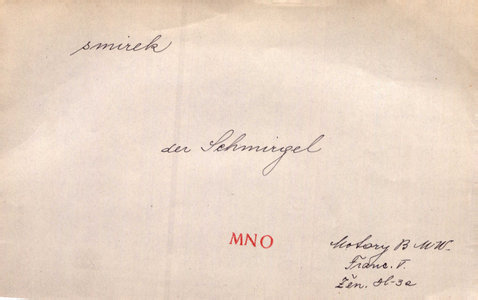 smirek
der Schmirgel
MNO
Motory BMW-
Franc. T.
Žen.